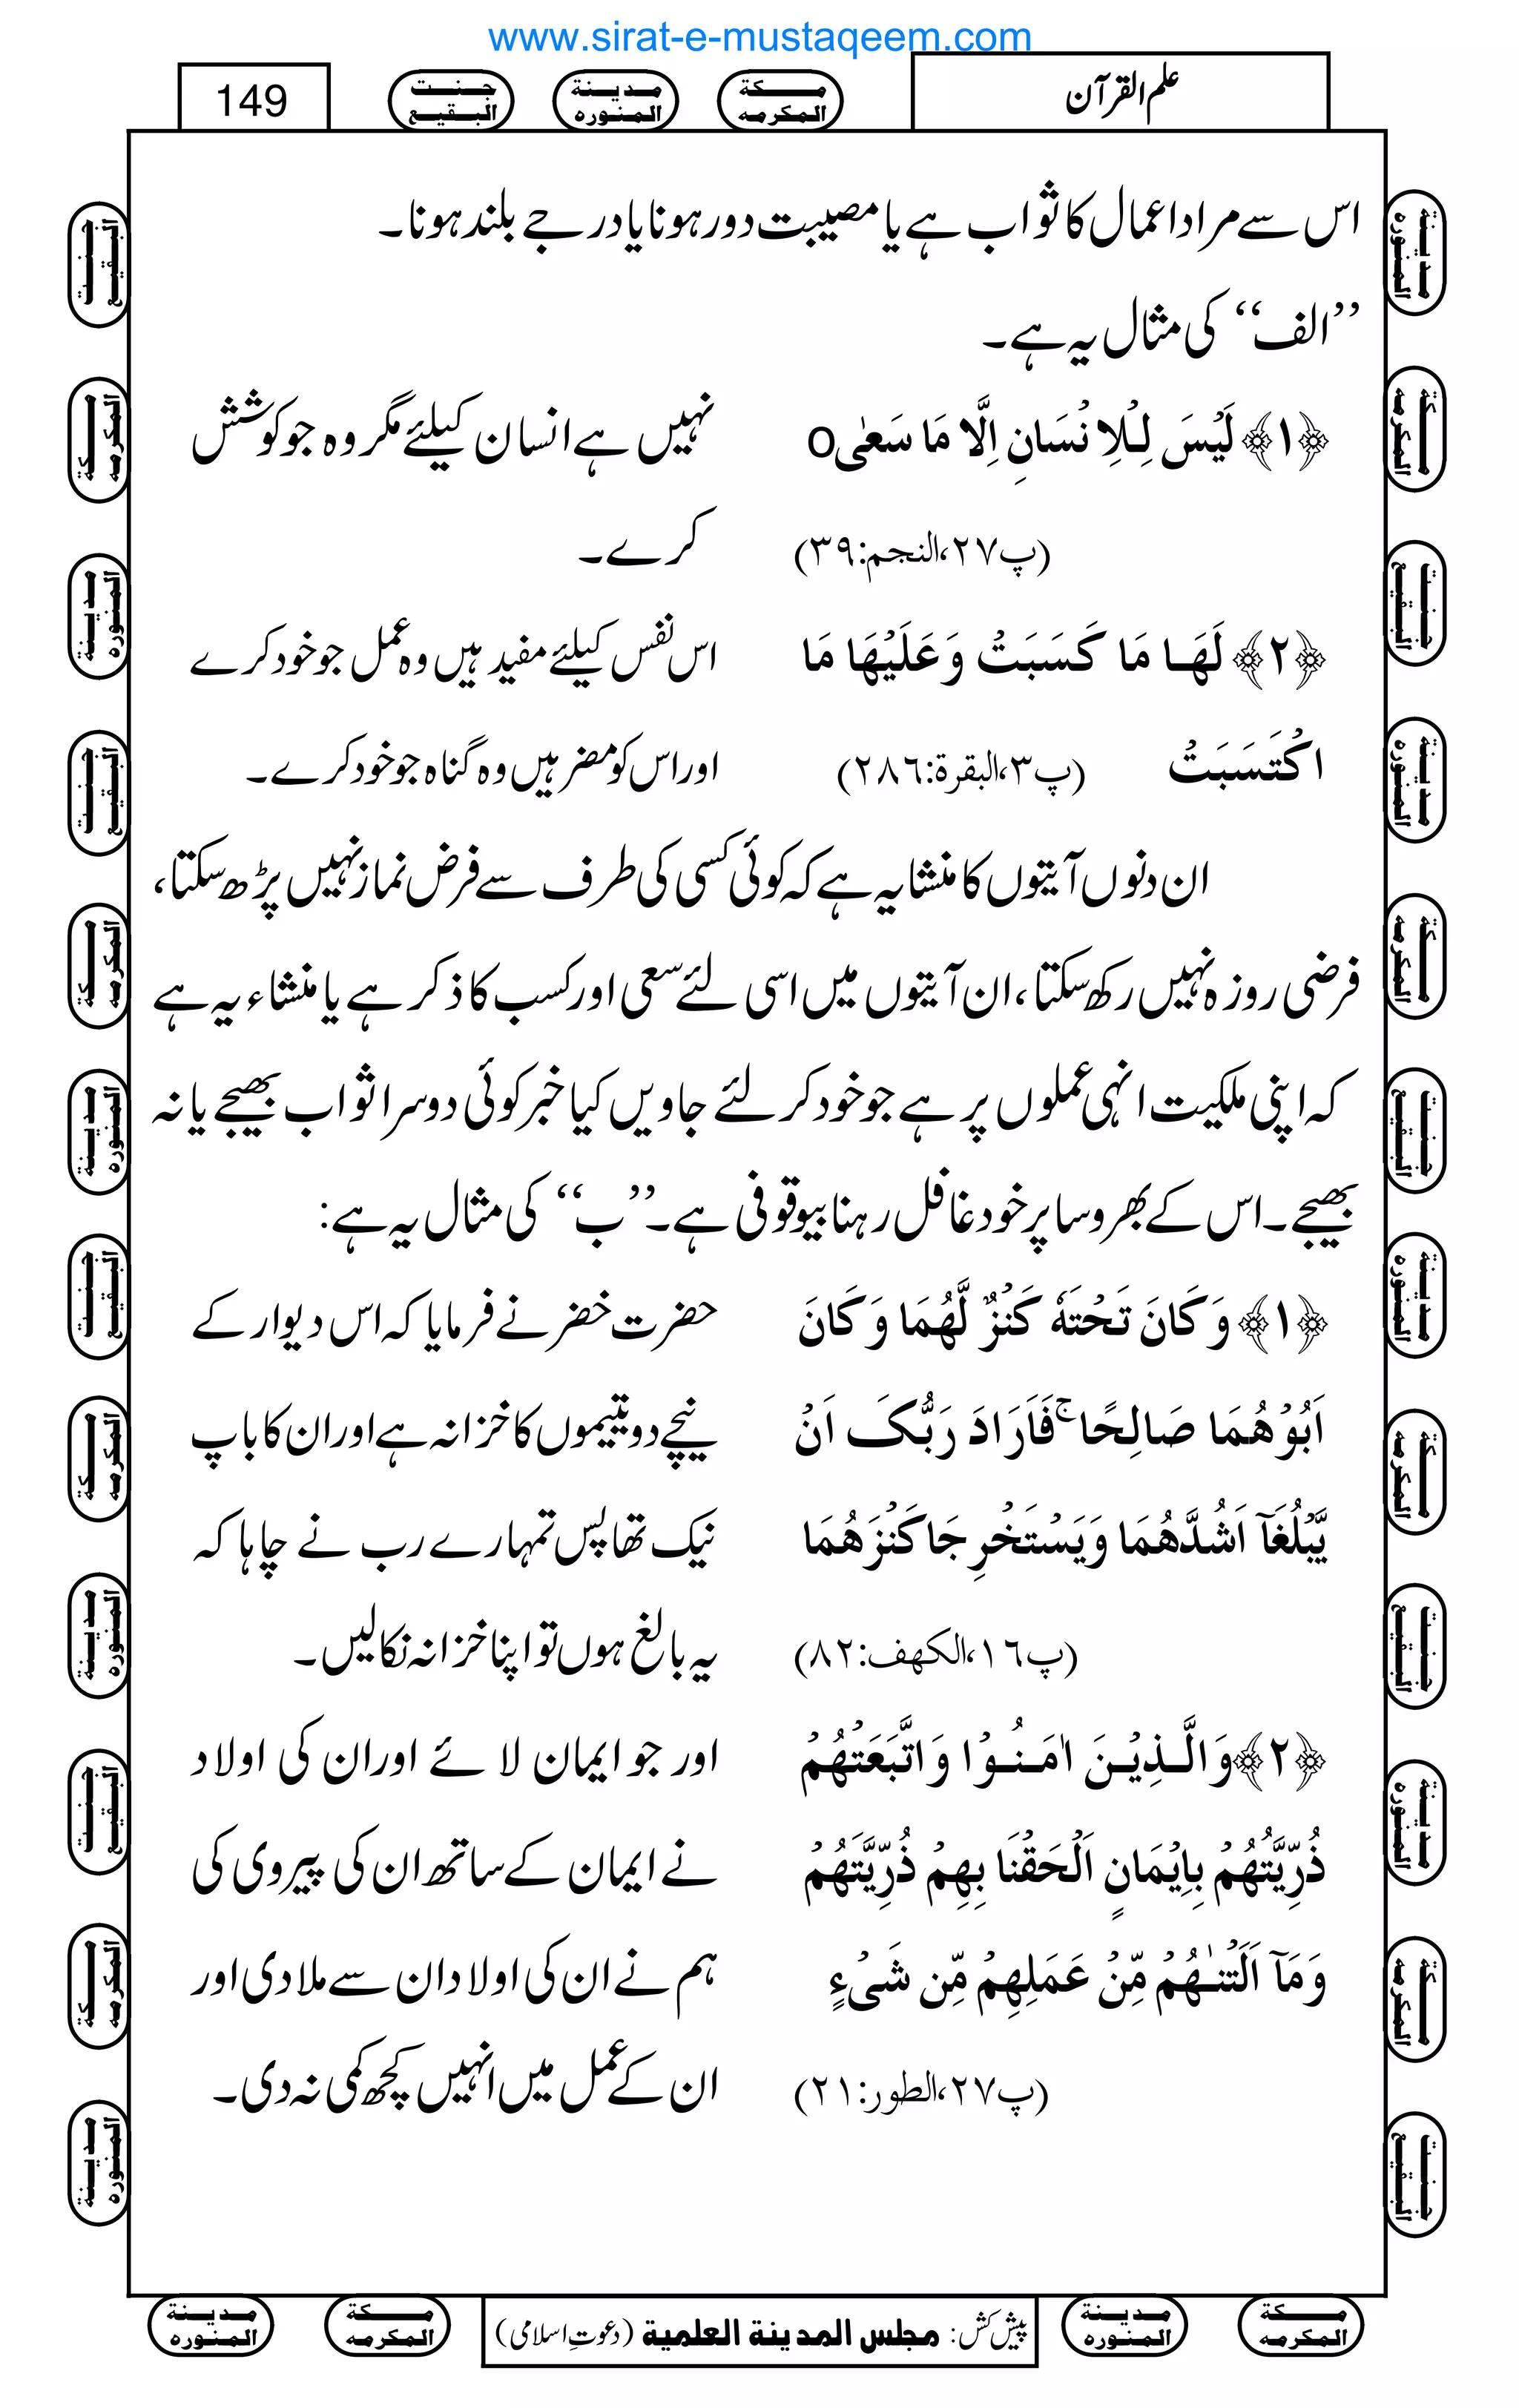 www.sirat-e-mustaqeem.com
علم القرآن
مكة المكرمه
مدينة المنوره
جنت البقيع
149
اس سے مراد اعمال کا ثواب ہے یا مصیبت دور ہونا یا درجے بلند ہونا۔
’’الف‘‘ کی مثال یہ ہے۔
﴿۱﴾ لَیۡسَ لِلۡاِنۡسَانِ اِلَّا مَا سَعٰی o
نہیں ہے انسان کیلئے مگر وہ جو کوشش
(پ۲۷،النجم:۳۹)
کرے۔
﴿۲﴾ لَهَا مَا کَسَبَتۡ وَعَلَیۡهَا مَا
اس نفس کیلئے مفید ہیں وہ عمل جو خود کرے
اکۡتَسَبَتۡ (پ۳،البقرة:۲۸۶)
اور اس کو مضر ہیں وہ گناہ جو خود کرے۔
ان دونوں آیتوں کا منشا یہ ہے کہ کوئی کسی کی طرف سے فرض نماز نہیں پڑھ سکتا،
فرضی روزہ نہیں رکھ سکتا، ان آیتوں میں اسی لئے سعی اور کسب کا ذکر ہے یا منشاء یہ ہے
کہ اپنی ملکیت انہی عملوں پر ہے جو خود کر لئے جاویں کیا خبر کوئی دوسرا ثواب بھیجے یا نہ
بھیجے۔ اس کے بھروسا پر خود غافل رہنا بیوقوفی ہے۔ ’’ب‘‘ کی مثال یہ ہے:
﴿۱﴾ وَکَانَ تَحۡتَهٗ کَنۡزٌ لَّهُمَا وَکَانَ
حضرت خضر نے فرمایا کہ اس دیوار کے
اَبُوۡهُمَا صَالِحًا ۚ فَاَرَادَ رَبُّکَ اَنۡ
نیچے دو یتیموں کا خزانہ ہے اور ان کا باپ
یَّبۡلُغَاۤ اَشُدَّهُمَا وَیَسۡتَخۡرِجَا کَنۡزَهُمَا
نیک تھا پس تمہارے رب نے چاہا کہ
(پ۱۶،الکهف:۸۲)
یہ بالغ ہوں تو اپنا خزانہ نکالیں۔
﴿۲﴾ وَالَّذِیۡنَ اٰمَنُوۡا وَاتَّبَعَتۡهُمۡ
اور جو ایمان لائے اور ان کی اولاد
ذُرِّیَّتُهُمۡ بِاِیۡمَانٍ اَلۡحَقۡنَا بِهِمۡ ذُرِّیَّتَهُمۡ
نے ایمان کے ساتھ ان کی پیروی کی
وَمَاۤ اَلَتۡنٰهُمۡ مِّنۡ عَمَلِهِمۡ مِّنۡ شَیۡءٍ
ہم نے ان کی اولاد ان سے ملا دی اور
(پ۲۷،الطور:۲۱)
ان کے عمل میں انہیں کچھ کمی نہ دی۔
پیش کش: مجلس المدينة العلمية (دعوتِ اسلامی)